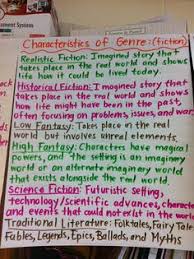 Characteristics of Genre: (fiction)
Realistic Fiction: Imagined story that
takes place in the real world and shows
life how it could be lived today.
Historical Fiction: Imagined story that
takes place in the real world and shows
how life might have been in the past,
often focusing on problems, issues, and war.
Low Fantasy: Takes place in the real
world but involves unreal elements.
High Fantasy: Characters have magical
powers, and the setting is an imaginary
world or an alternate imaginary world
that exists alongside the real world.
Science Fiction: Futuristic setting,
technology/scientific advances, characte
and events that could not exist in the world.
Traditional Literature: Folktales, Fairy Tale
Fables, Legends, Epics, Ballads, and Myths